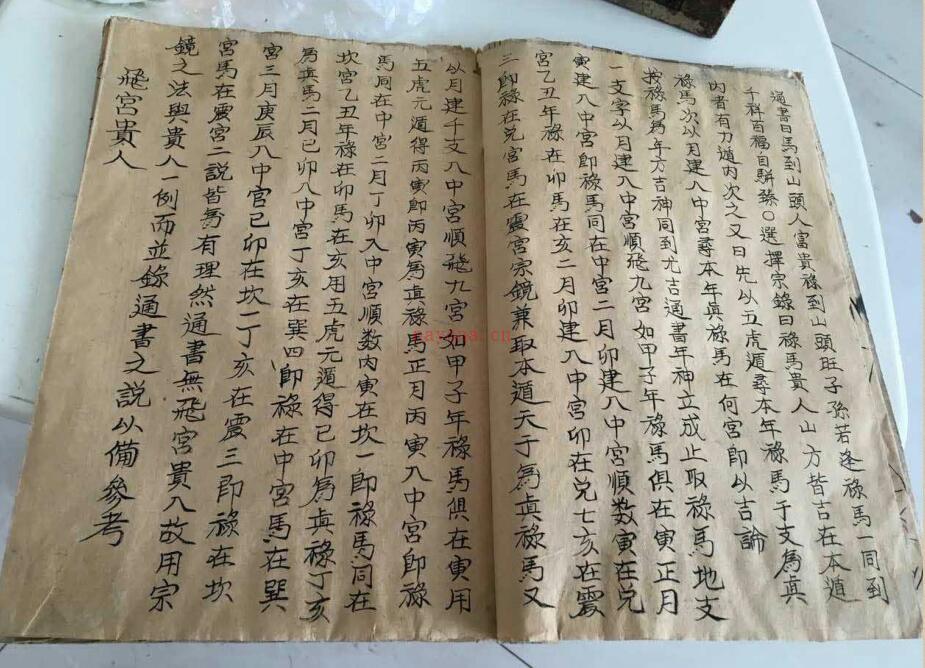 通書曰馬到山頭人富貴祿到山頭旺子孫若逢祿馬一同到
千祥百福自駢臻〇選擇宗錄曰祿馬貴人山方皆吉在本遁
內者有力遁內次之又曰先以五虎遁尋本年祿馬干支為真
祿馬次以月建入中宮尋本年真祿馬在何宮即以吉論
按祿馬為年方吉神同到尤吉通書年神立成止取祿馬地支
一支字以月建入中宮順飛九宮如甲子年祿馬俱在寅正月
寅建入中宮即祿馬同在中宮二月卯建入中宮順數寅在兌
宮乙丑年祿在卯馬在亥二月卯建入中宮卯在兌七亥在震
三即祿在兌宮馬在震宮宗鏡兼取本遁天干為真祿馬又
以月建干支入中宮順飛九宮如甲子年祿馬俱在寅用
五虎元遁得丙寅即丙寅為真祿馬正月丙寅入中宮即祿
馬同在中宮二月丁卯入中宮順数丙寅在坎一即祿馬同在
坎宮乙丑年祿在卯馬在亥用五虎元遁得己卯為真祿丁亥
為真馬二月己卯入中宮丁亥在巽四即祿在中宮馬在巽
宮三月庚辰入中宮己卯在坎一丁亥在震三即祿在坎
宮馬在震宮二說皆為有理然通書無飛宮貴人故用宗
鏡之法與貴人一例而並錄通書之說以備參考
飛宮貴人